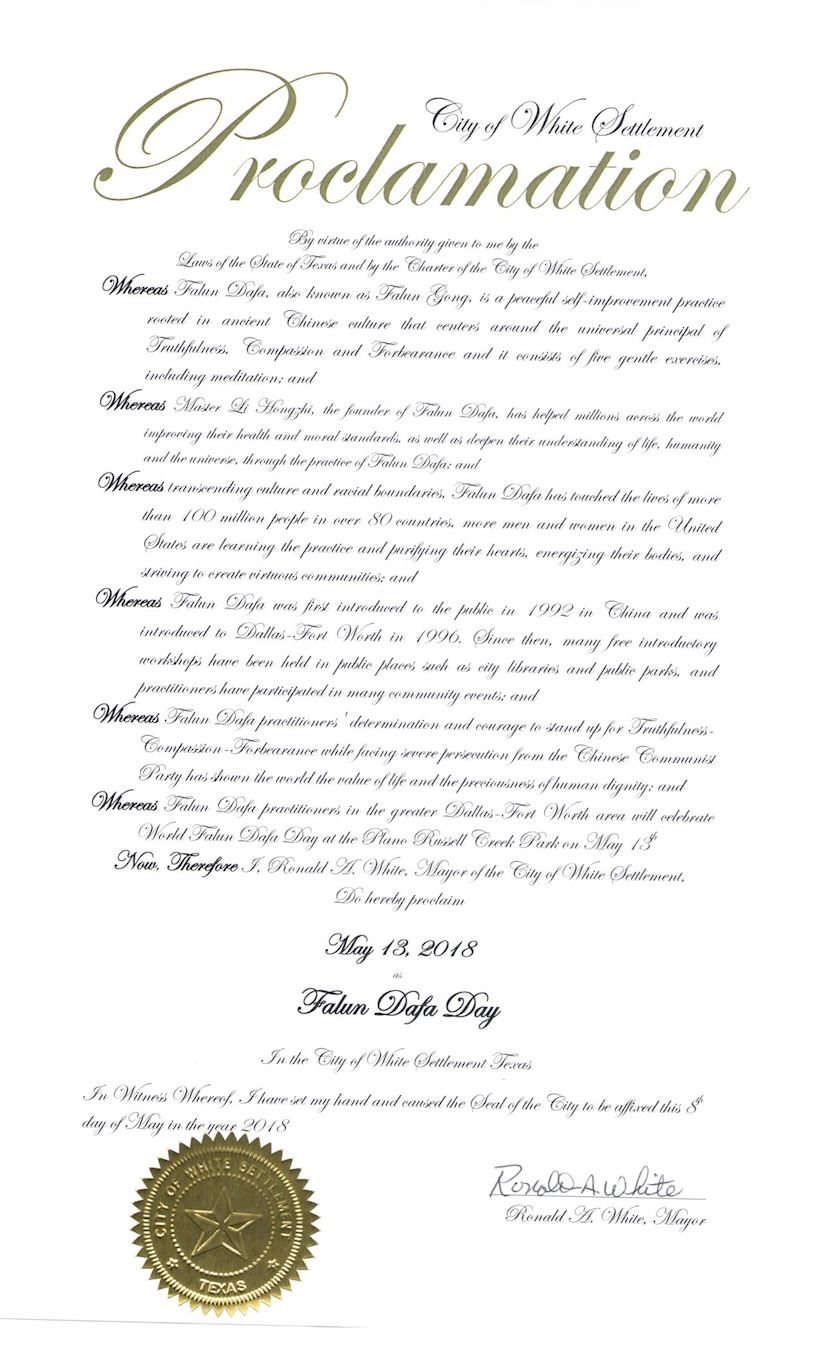 City of White Settlement
Proclamation
By virtue of the authority given to me by the
Laws of the State of Texas and by the Charter of the City of White Settlement,
Whereas Falun Dafa, also known as Falun Gong, is a peaceful self-improvement practice
rooted in ancient Chinese culture that centers around the universal principal of
Truthfulness, Compassion and Forbearance and it consists of five gentle exercises,
including meditation; and
Whereas Master Li Hongzhi, the founder of Falun Dafa, has helped millions across the world
improving their health and moral standards, as well as deepen their understanding of life, humanity
and the universe, through the practice of Falun Dafa; and
Whereas transcending culture and racial boundaries, Falun Dafa has touched the lives of more
than 100 million people in over 80 countries, more men and women in the United
States are learning the practice and purifying their hearts, energizing their bodies, and
striving to create virtuous communities; and
Whereas Falun Dafa was first introduced to the public in 1992 in China and was
introduced to Dallas-Fort Worth in 1996. Since then, many free introductory
workshops have been held in public places such as city libraries and public parks, and
practitioners have participated in many community events; and
Whereas Falun Dafa practitioners' determination and courage to stand up for Truthfulness-
Compassion-Forbearance while facing severe persecution from the Chinese Communist
Party has shown the world the value of life and the preciousness of human dignity; and
Whereas Falun Dafa practitioners in the greater Dallas-Fort Worth area will celebrate
World Falun Dafa Day at the Plano Russell Creek Park on May 13th
Now, Therefore I, Ronald A. White, Mayor of the City of White Settlement,
Do hereby proclaim
May 13, 2018
as
Falun Dafa Day
In the City of White Settlement Texas
In Witness Whereof, I have set my hand and caused the Seal of the City to be affixed this 8th
day of May in the year 2018
CITY OF WHITE SETTLEMENT
TEXAS
Ronald A. White
Ronald A. White, Mayor